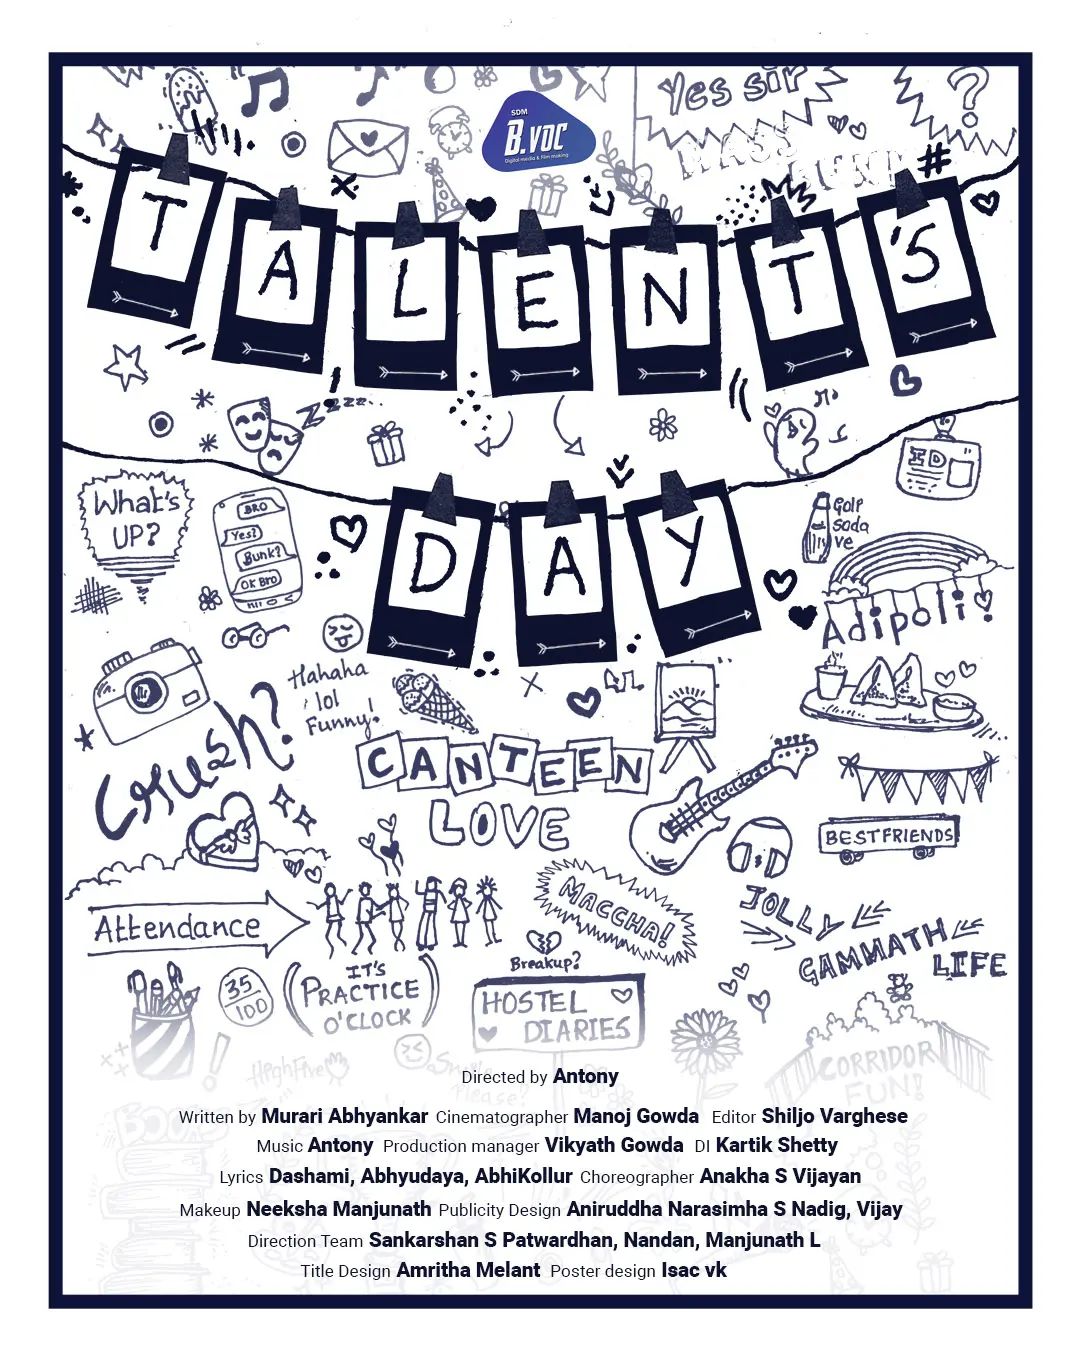 Yes sir
MASS
BUNK
#
SDM
B.VOC
Digital media & Film making
TALENT'S
zzzz..
ID
DAY
What's
UP?
BRO
Yes?
Bunk?
OK Bro
Goli
Soda
ve
Adipoli!
Hahaha
lol
Funny!
Crush?
CANTEEN
LOVE
BESTFRIENDS
MACCHA!
JOLLY
GAMMATH
LIFE
Attendance
Breakup?
35
100
IT'S
(PRACTICE)
O'CLOCK
HOSTEL
DIARIES
High Five
Smile
Please?
CORRIDOR
FUN!
BOOKS
Directed by Antony
Written by Murari Abhyankar Cinematographer Manoj Gowda Editor Shiljo Varghese
Music Antony Production manager Vikyath Gowda DI Kartik Shetty
Lyrics Dashami, Abhyudaya, AbhiKollur Choreographer Anakha S Vijayan
Makeup Neeksha Manjunath Publicity Design Aniruddha Narasimha S Nadig, Vijay
Direction Team Sankarshan S Patwardhan, Nandan, Manjunath L
Title Design Amritha Melant Poster design Isac vk